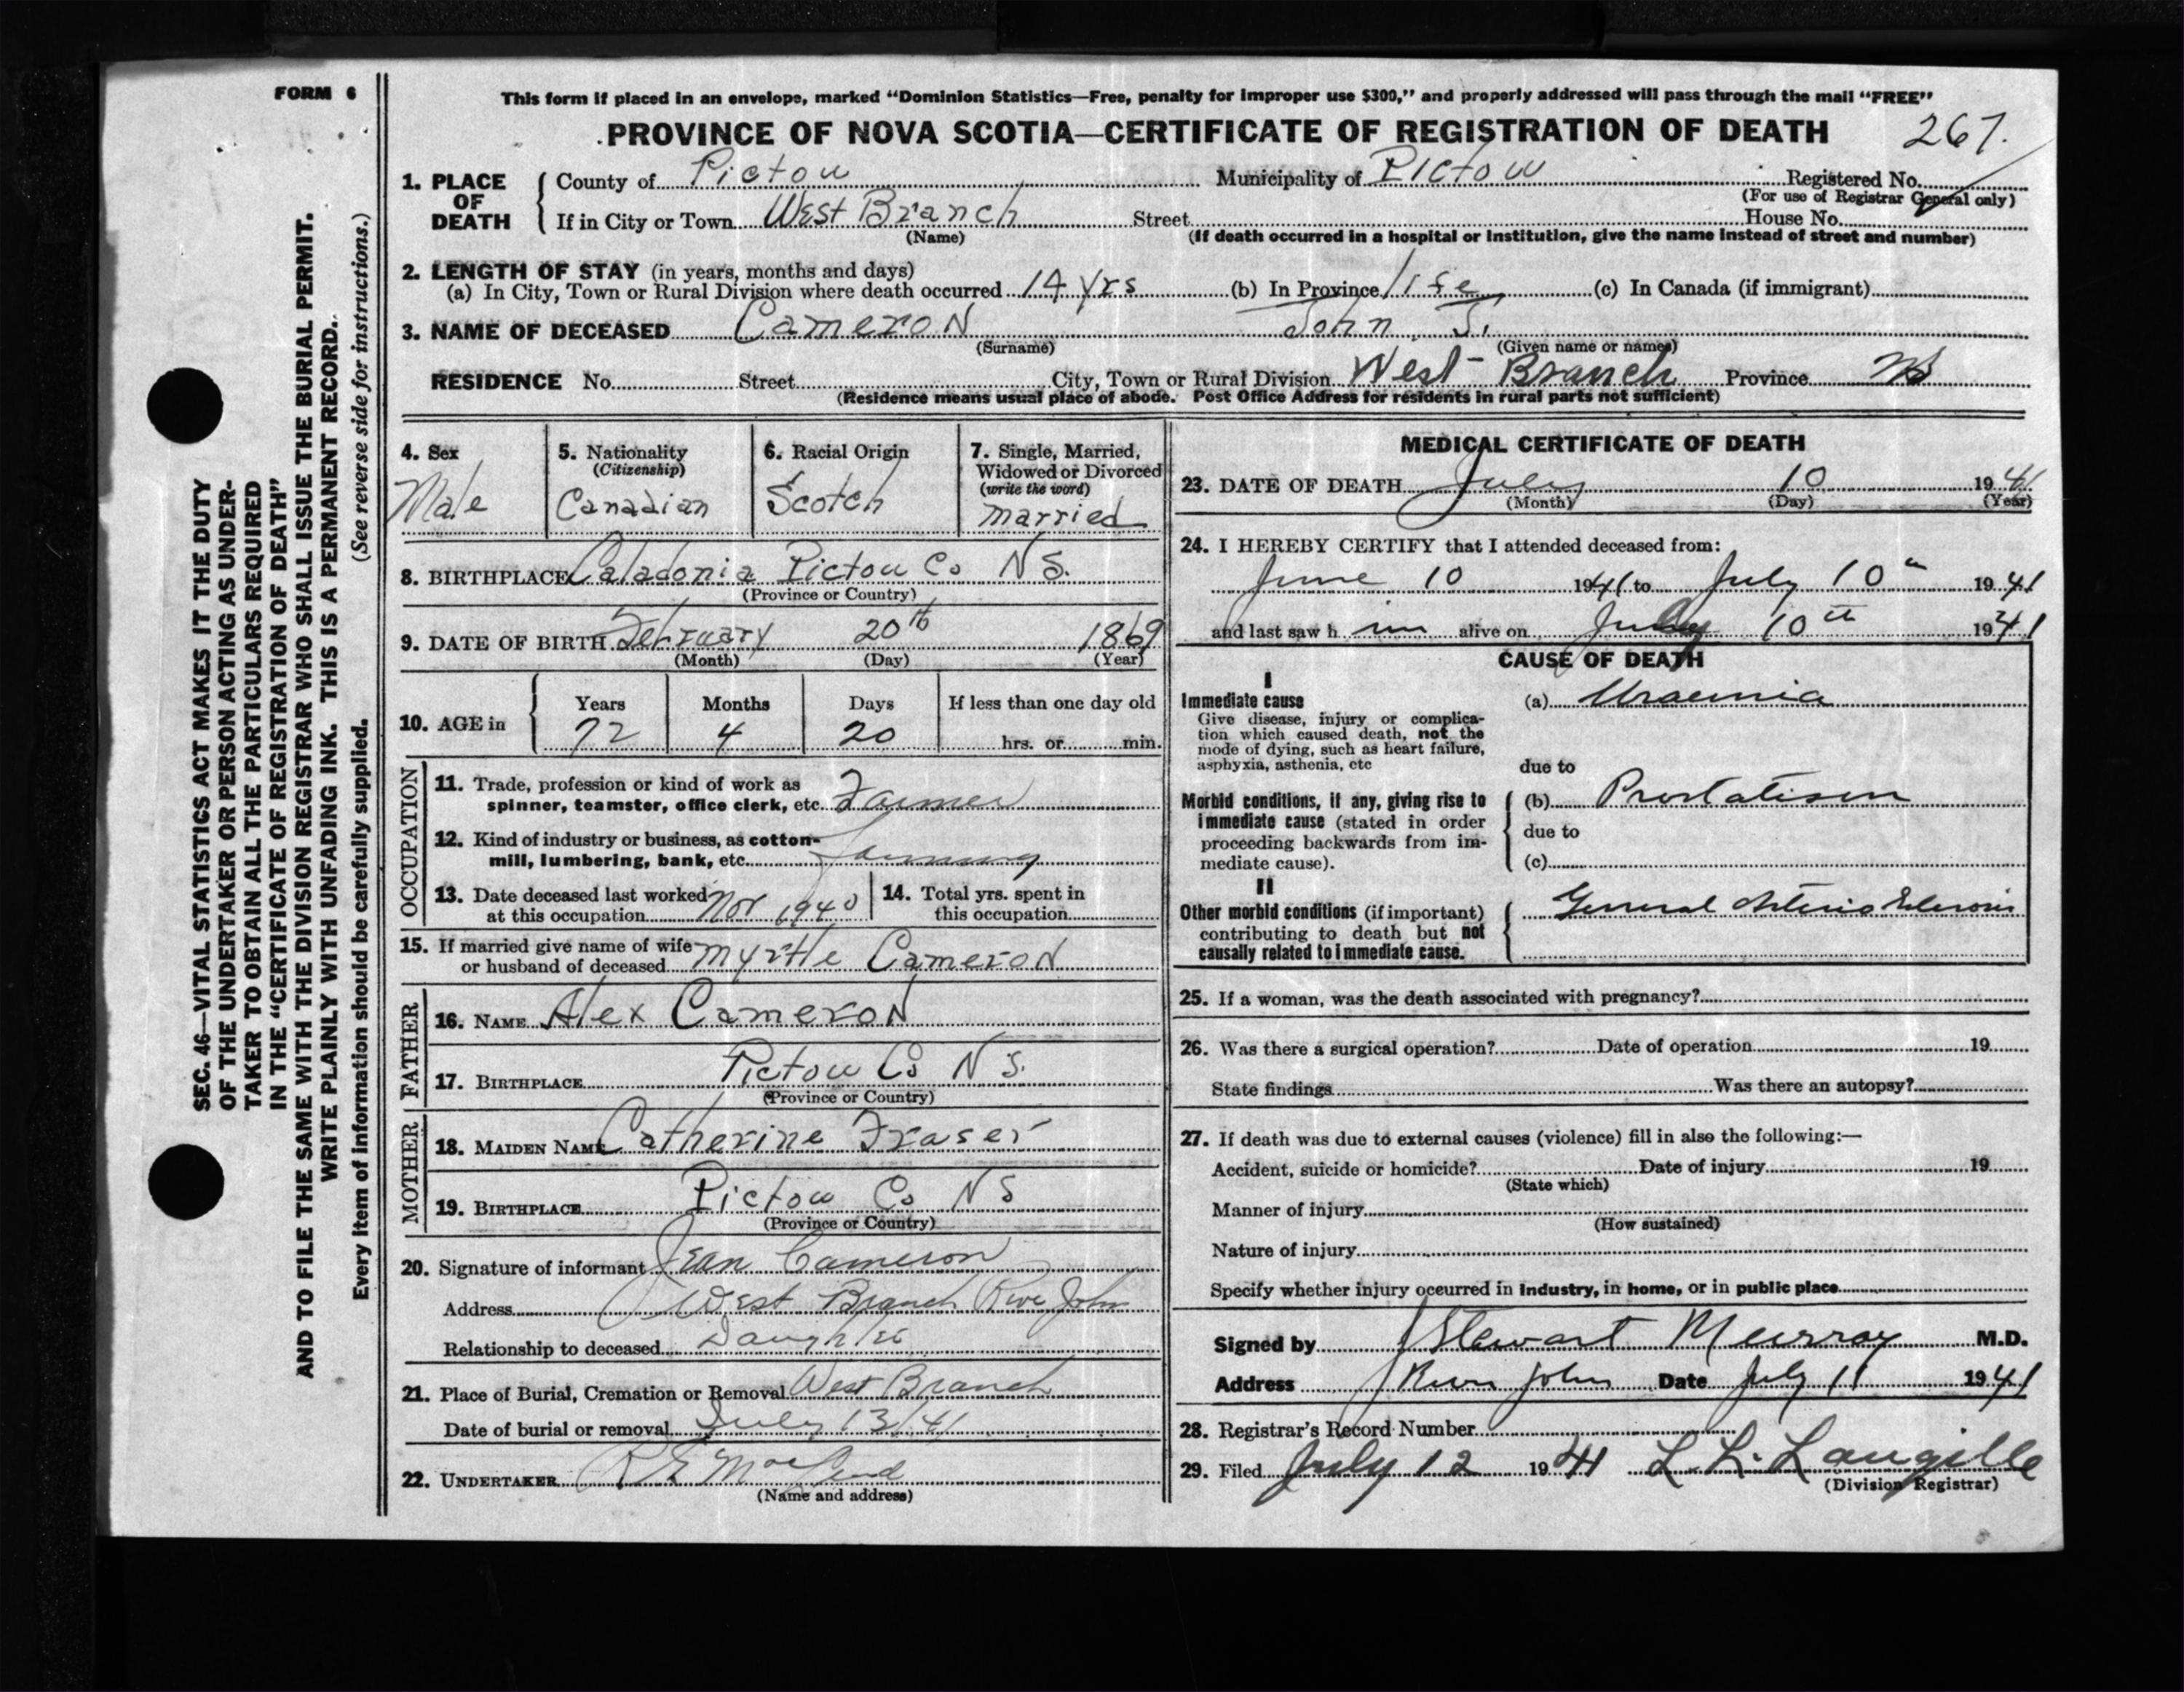 FORM 6
SEC. 46—VITAL STATISTICS ACT MAKES IT THE DUTY
OF THE UNDERTAKER OR PERSON ACTING AS UNDER-
TAKER TO OBTAIN ALL THE PARTICULARS REQUIRED
IN THE "CERTIFICATE OF REGISTRATION OF DEATH"
AND TO FILE THE SAME WITH THE DIVISION REGISTRAR WHO SHALL ISSUE THE BURIAL PERMIT.
WRITE PLAINLY WITH UNFADING INK. THIS IS A PERMANENT RECORD.
Every item of information should be carefully supplied. (See reverse side for instructions.)
This form if placed in an envelope, marked "Dominion Statistics—Free, penalty for improper use $300," and properly addressed will pass through the mail "FREE"
PROVINCE OF NOVA SCOTIA—CERTIFICATE OF REGISTRATION OF DEATH 267.
1. PLACE OF DEATH
County of Pictou Municipality of Pictou Registered No.
(For use of Registrar General only)
If in City or Town West Branch Street House No.
(Name) (If death occurred in a hospital or institution, give the name instead of street and number)
2. LENGTH OF STAY (in years, months and days)
(a) In City, Town or Rural Division where death occurred 14 yrs (b) In Province life (c) In Canada (if immigrant)
3. NAME OF DECEASED Cameron John J.
(Surname) (Given name or names)
RESIDENCE No. Street City, Town or Rural Division West Branch Province NS
(Residence means usual place of abode. Post Office Address for residents in rural parts not sufficient)
4. Sex
Male
5. Nationality
(Citizenship)
Canadian
6. Racial Origin
Scotch
7. Single, Married,
Widowed or Divorced
(write the word)
married
8. BIRTHPLACE Caladonia Pictou Co NS.
(Province or Country)
9. DATE OF BIRTH February 20th 1869
(Month) (Day) (Year)
10. AGE in
Years Months Days If less than one day old
72 4 20 hrs. or min.
OCCUPATION
11. Trade, profession or kind of work as
spinner, teamster, office clerk, etc. Farmer
12. Kind of industry or business, as cotton-
mill, lumbering, bank, etc. Farming
13. Date deceased last worked
at this occupation Nov 1940
14. Total yrs. spent in
this occupation
15. If married give name of wife
or husband of deceased Myrtle Cameron
FATHER
16. NAME Alex Cameron
17. BIRTHPLACE Pictou Co NS.
(Province or Country)
MOTHER
18. MAIDEN NAME Catherine Fraser
19. BIRTHPLACE Pictou Co NS
(Province or Country)
20. Signature of informant Jean Cameron
Address West Branch River John
Relationship to deceased Daughter
21. Place of Burial, Cremation or Removal West Branch
Date of burial or removal July 13/41
22. UNDERTAKER
(Name and address)
MEDICAL CERTIFICATE OF DEATH
23. DATE OF DEATH July 10 1941
(Month) (Day) (Year)
24. I HEREBY CERTIFY that I attended deceased from:
June 10 1941 to July 10th 1941
and last saw him alive on July 10th 1941
CAUSE OF DEATH
I
Immediate cause
Give disease, injury or complica-
tion which caused death, not the
mode of dying, such as heart failure,
asphyxia, asthenia, etc
(a) Uraemia
due to
Morbid conditions, if any, giving rise to
immediate cause (stated in order
proceeding backwards from im-
mediate cause).
(b) Prostatism
due to
(c)
II
Other morbid conditions (if important)
contributing to death but not
causally related to immediate cause.
General Arterio Sclerosis
25. If a woman, was the death associated with pregnancy?
26. Was there a surgical operation? Date of operation 19
State findings Was there an autopsy?
27. If death was due to external causes (violence) fill in also the following:—
Accident, suicide or homicide? Date of injury 19
(State which)
Manner of injury
(How sustained)
Nature of injury
Specify whether injury occurred in industry, in home, or in public place
Signed by J Stewart Murray M.D.
Address River John Date July 11 1941
28. Registrar's Record Number
29. Filed July 12 1941 L. L. Langille
(Division Registrar)